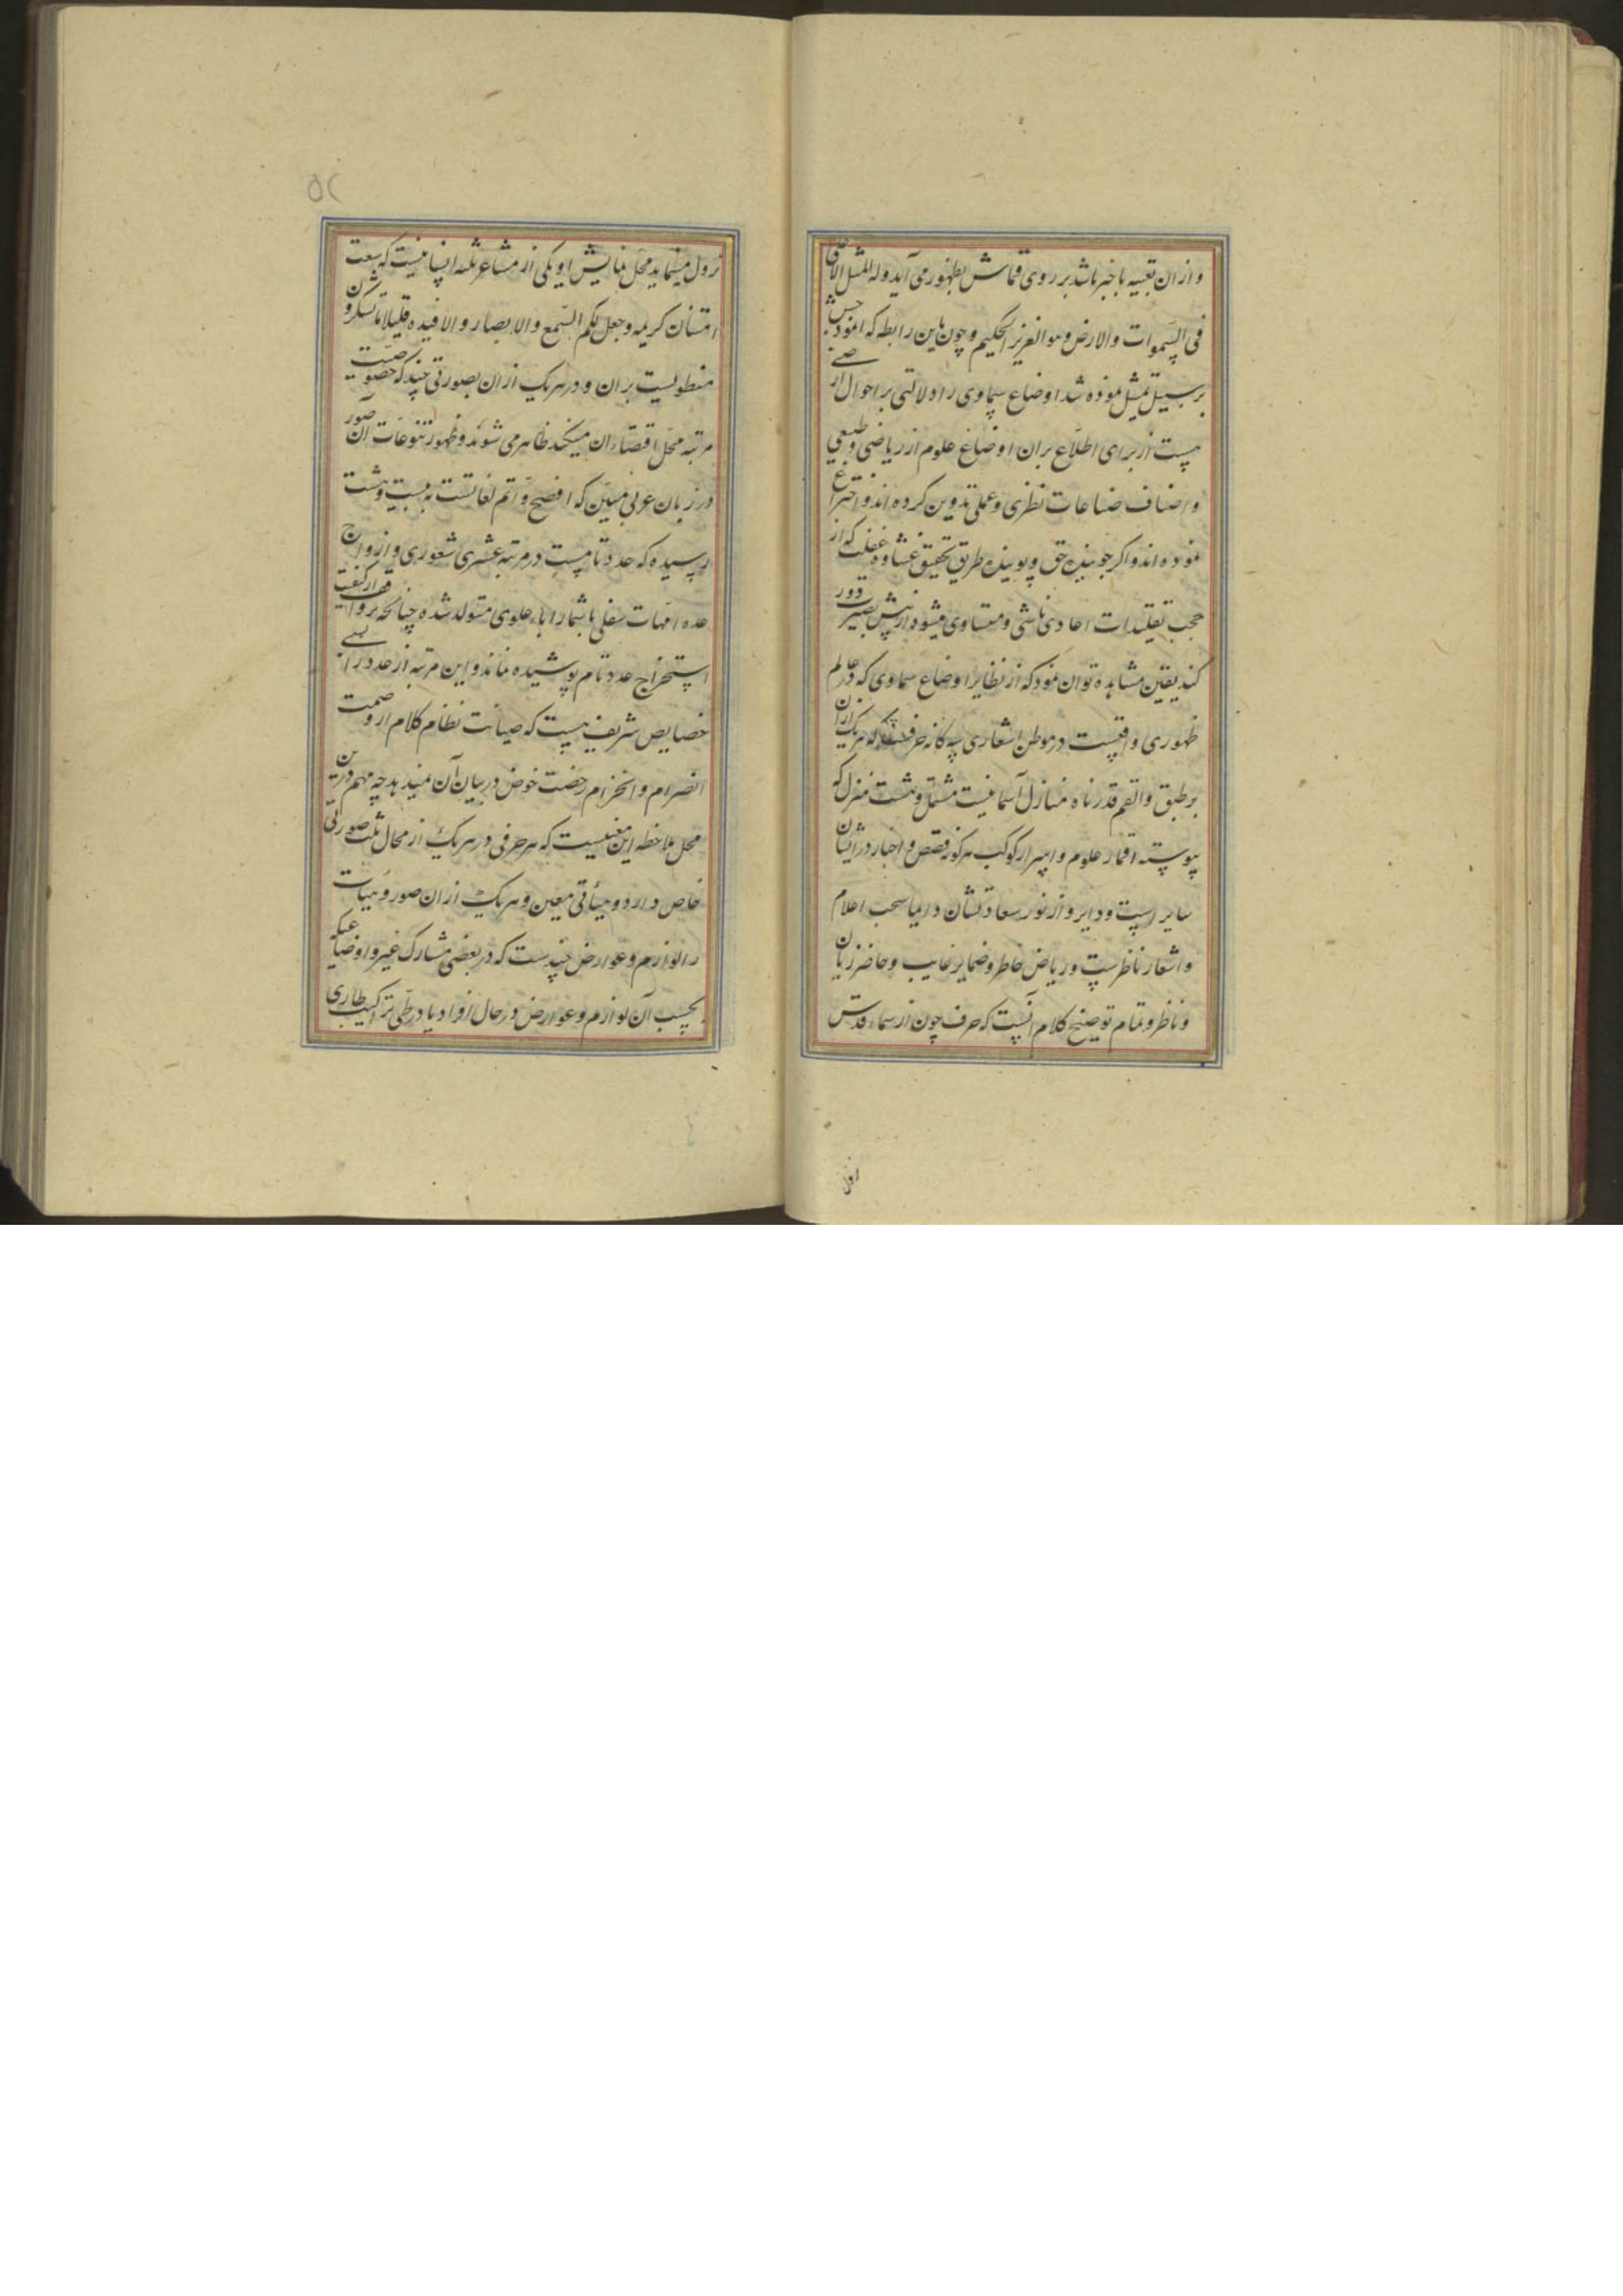 و ازان تعبیه باخبر باشد بر روی قماش بظهور می آید وله المثل الاعلی
فی السموات والارض وهو العزیز الحکیم و چون باین رابطه که انموذجش
بر سبیل تمثیل نموده شد اوضاع سماوی را دلالتی بر احوال ارضی
هست از برای اطلاع بران اوضاع علوم از ریاضی و طبیعی
و اصناف صناعات نظری و عملی تدوین کرده اند و اختراع
نموده اند و اگر جوینده حق و پوینده طریق تحقیق غشاوه غفلت که از
حجب تقلیدات اعادی ناشی و متساوی میشود از پیش بصیرت دور
کند یقین مشاهده توان نمود که از نظایر اوضاع سماوی که در عالم
ظهوری واقعست در موطن اشعاری سه کانه حرفست که هریک ازان
بر طبق والقمر قدرناه منازل آسمانیست مشتمل و هشت منزل که
پیوسته اقمار علوم و اسرار کوکب هر کونه قصص و اخبار در ایشان
سایر است و دایر و از نور سعادتشان دایما سحب اعلام
و اشعار ناظرست و ریاض خاطر و ضمایر غایب و حاضر زیان
و ناظر و تمام توضیح کلام آنست که حرف چون از سماء قدس
نزول
۵۲
نزول مینماید محل نمایش او یکی از مشاعر ثلثه انسانیست که سعت
امتنان کریمه وجعل لکم السمع والابصار والافیده قلیلا ما تشکرون
منطویست بران و در هریک ازان بصورتی چند که خصوصیت
مرتبه محل اقتضاء ان میکند ظاهر می شوند و ظهور تنوعات آن صور
در زبان عربی مبین که افصح و اتم لغاتست به بیست و هشت
رسیده که عدد تامست در مرتبه عشری شعوری و ازواج
عده امهات سفلی با شمار اباء علوی متولد شده چنانچه بر واقف از کیفیت
استخراج عدد تام پوشیده نماند و این مرتبه از عدد را بسی
خصایص شریفه هست که صیانت نظام کلام از وصمت
انصرام و انخرام رخصت خوض در بیان آن نمیدهد چه مهم درین
محل ملاحظه این معنیست که هر حرفی در هریک از محال ثلث صورتی
خاص دارد و هیأتی معین و هریک ازان صور و هیات
را لوازم و عوارض چندست که در بعضی مشارک غیر و اوضاعیکه
بحسب آن لوازم و عوارض در حال افراد یا در طی تراکیب طاری